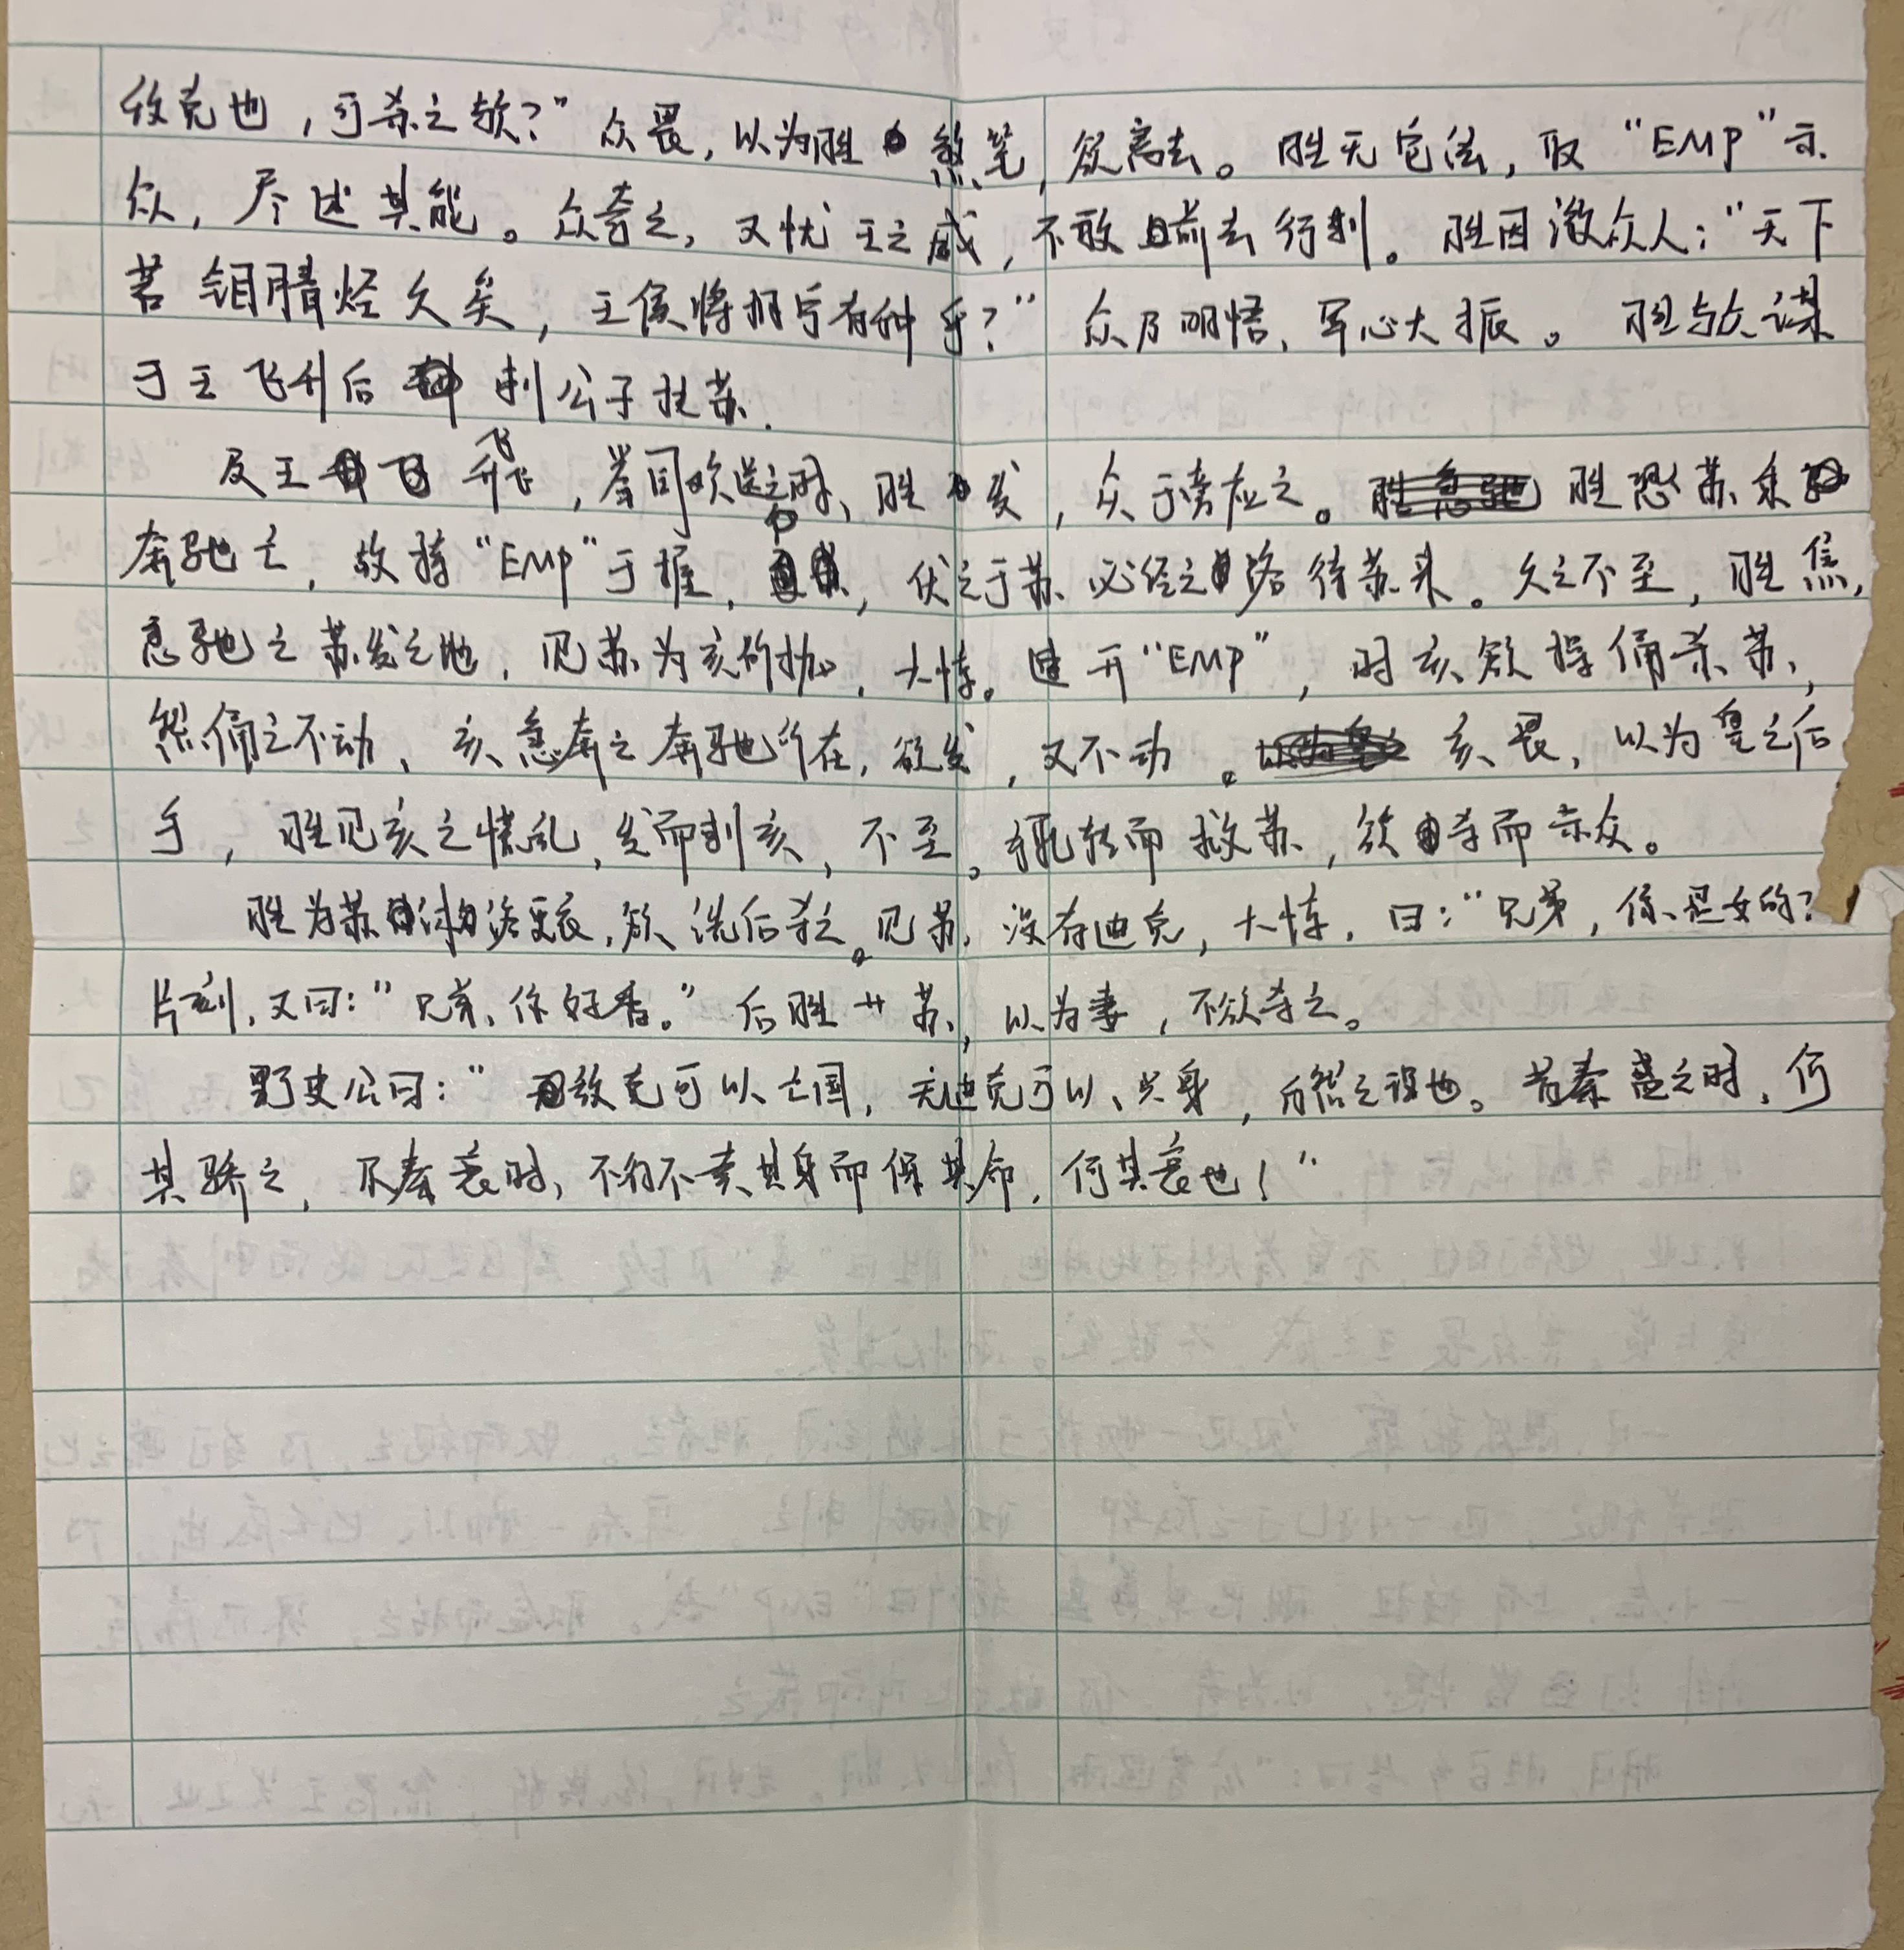 攸克也，可杀之欤？”众畏，以为胜煞笔，欲离去。胜无它法，取“EMP”示
众，尽述其能。众奇之，又忧王之威，不敢前去行刺。胜因激众人：“天下
苦钼腈烃久矣，王侯将相宁有种乎？”众乃明悟，军心大振。胜与众谋
于王飞升后刺公子扶苏.
及王飞升，举国欢送之时、胜发，众于旁应之。胜恐苏乘
奔驰亡，故持“EMP”于握，伏之于苏必经之路待苏来。久之不至，胜焦，
急驰之苏发之地，见苏为亥所执，大惊。速开“EMP”，时亥欲操俑杀苏，
然俑之不动、亥急奔之奔驰所在，欲发，又不动。亥畏，以为皇之后
手，胜见亥之慌乱，发而刺亥，不至。转而救苏，欲杀而示众。
胜为苏沐浴更衣，欲洗后杀之。见苏没有迪克，大惊，曰：“兄弟，你是女的？
片刻，又曰：“兄弟、你好香。”后胜艹苏，以为妻，不欲杀之。
野史公曰：“攸克可以亡国，无迪克可以兴身，自然之理也。昔秦盛之时，何
其骄之，及秦衰时，不得不卖其身而保其命，何其哀也！”